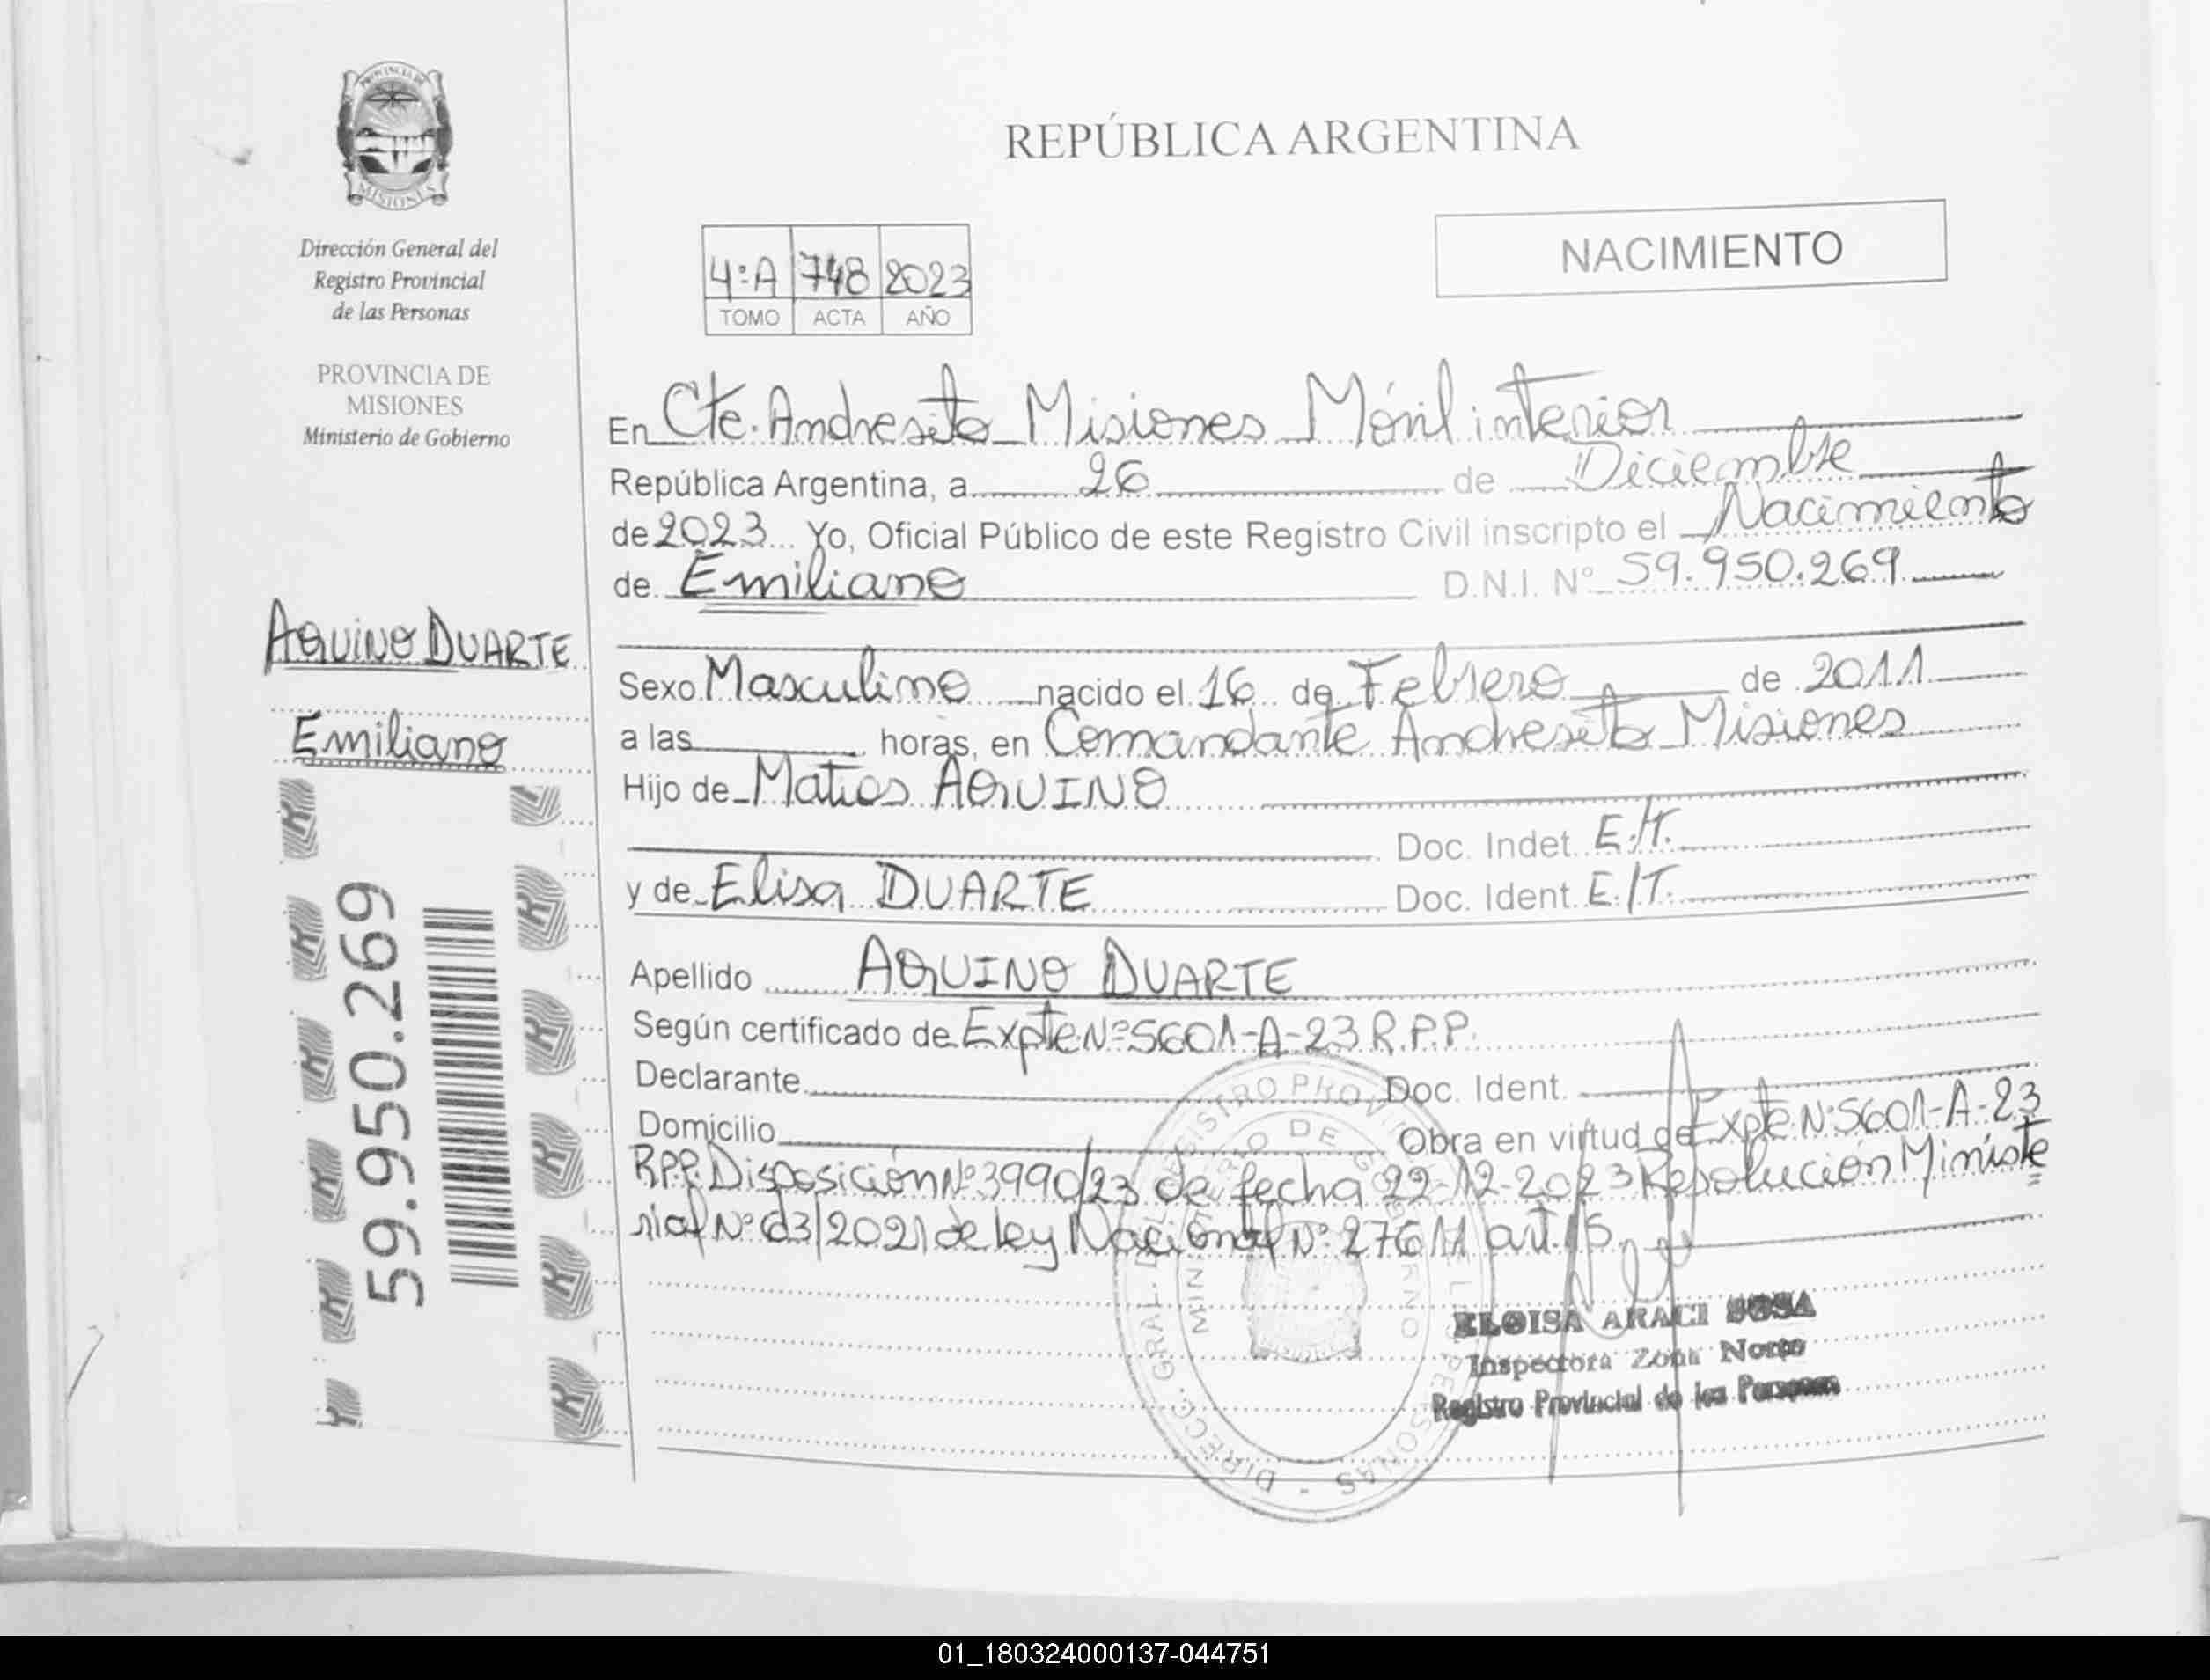 PROVINCIA DE
MISIONES
Dirección General del
Registro Provincial
de las Personas
PROVINCIA DE
MISIONES
Ministerio de Gobierno
AQUINO DUARTE
Emiliano
59.950.269
REPÚBLICA ARGENTINA
NACIMIENTO
4:A 748 2023
TOMO ACTA AÑO
En Cte. Andresito Misiones Móvil interior
República Argentina, a 26 de Diciembre
de 2023 Yo, Oficial Público de este Registro Civil inscripto el Nacimiento
de Emiliano D.N.I. Nº 59.950.269
Sexo Masculino nacido el 16 de Febrero de 2011
a las horas, en Comandante Andresito Misiones
Hijo de Matios AQUINO
Doc. Indet. E/T.
y de Elisa DUARTE Doc. Ident. E/T.
Apellido AQUINO DUARTE
Según certificado de Expte Nº 5601-A-23 R.P.P.
Declarante Doc. Ident.
Domicilio Obra en virtud de Expte Nº 5601-A-23
RPP. Disposición Nº 3990/23 de fecha 22-12-2023 Resolución Ministe
rial Nº 63/2021 de ley Nacional Nº 27611 art. 15.
DIRECC. GRAL. DEL REGISTRO PROVINCIAL DE LAS PERSONAS
MINISTERIO DE GOBIERNO
ELOISA ARACI SOSA
Inspectora Zona Norte
Registro Provincial de las Personas
01_180324000137-044751